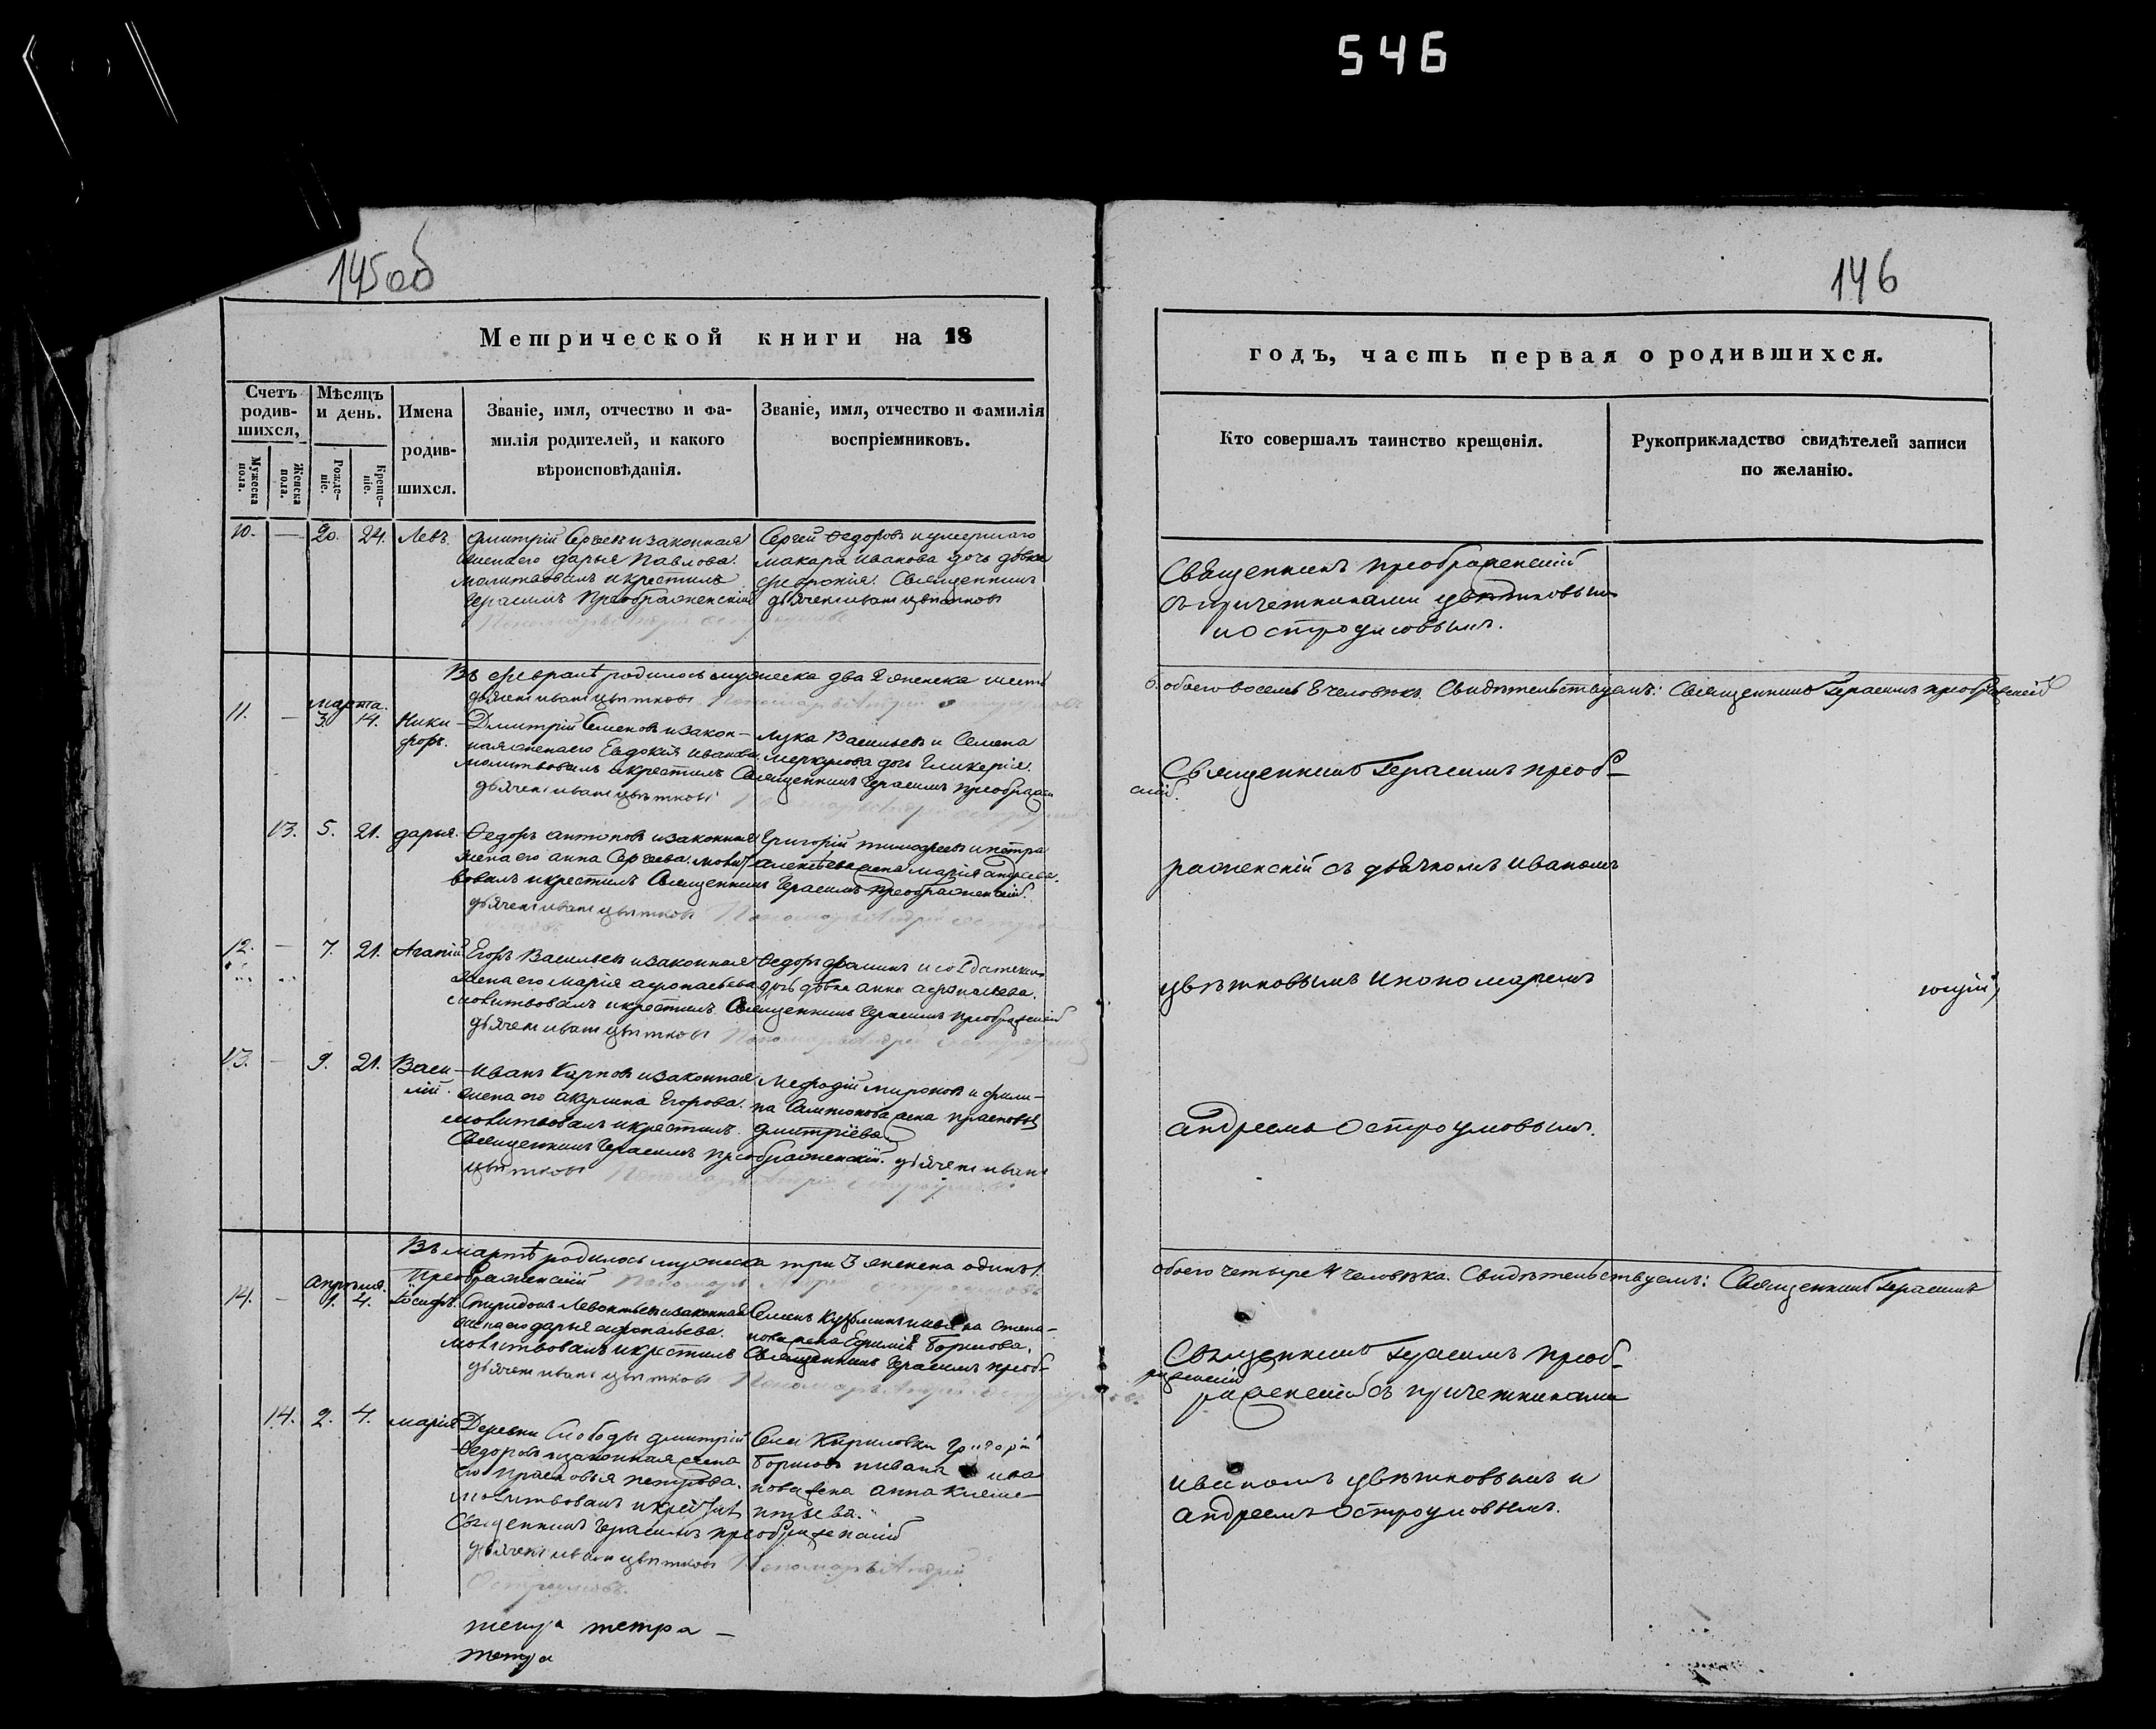 546
145об
146
Метрической книги на 18
годъ, часть первая о родившихся.
Счетъ родив-шихся,
Мужеска пола.
Женска пола.
Мѣсяцъ и день.
Рожде-ніе.
Креще-ніе.
Имена родив-шихся.
Званіе, имя, отчество и фа-
милія родителей, и какого
вѣроисповѣданія.
Званіе, имя, отчество и фамилія
воспріемниковъ.
Кто совершалъ таинство крещенія.
Рукоприкладство свидѣтелей записи
по желанію.
10. — 20. 24. Левъ.
Дмитрій Сергеевъ и законная
жена его дарья Павлова.
молитвовалъ и крестилъ
Герасимъ Преображенскій
Сергей Федоровъ и умершаго
макара иванова дочь дѣвка
феврония. Священникъ
дьячекъ иванъ цвѣтковъ
Священникъ преображенскій
съ причетниками цвѣтковымъ
и остроумовымъ.
Въ февралѣ родилось мужеска два 2 женска шесть
6. обоего восемь 8 человѣкъ. Свидѣтельствуемъ: Священникъ Герасимъ преображенскій
дьячекъ иванъ цвѣтковъ Пономарь Андрей Остроумовъ
марта.
11. — 3. 14. Ники-
форъ.
Дмитрій Семеновъ и закон-
ная жена его Евдокия иванова.
молитвовалъ и крестилъ Священникъ Герасимъ преображен
дьячекъ иванъ цвѣтковъ
Лука Васильевъ и Семена
меркулова дочь Гликерія.
Священникъ Герасимъ преоб-
скій.
13. 5. 21. дарья.
Федоръ антоновъ и законная
жена его анна Сергеева. молит
вовалъ и крестилъ Священникъ Герасимъ преображенскій.
дьячекъ иванъ цвѣтковъ Пономарь Андрей остроу
Григорій тимофеевъ и петра
алексѣева жена марія андреева.
раженскій съ дьячкомъ иваномъ
12. — 7. 21. Агапій
Егоръ Васильевъ и законная
жена его марія афонасьева
молитвовалъ и крестилъ Священникъ Герасимъ преображенскій
дьячекъ иванъ цвѣтковъ
Федоръ фоминъ и солдатская
дочь дѣвка анна афонасьева.
цвѣтковымъ и пономаремъ
13. — 9. 21. Васи-
лій.
Иванъ Карповъ и законная
жена его акулина Егорова.
молитвовалъ и крестилъ.
Священникъ Герасимъ преображенскій. дьячекъ иванъ
цвѣтковъ Пономарь Андрей Остроумовъ
Мефодій мироновъ и фили-
па Самсонова жена прасковья
дмитріева.
андреемъ Остроумовымъ.
Въ мартѣ родилось мужеска три 3 женска одинъ 1.
обоего четыре 4 человѣка. Свидѣтельствуемъ: Священникъ Герасимъ
Преображенскій Пономарь Андрей остроумовъ
апрѣля.
14. — 1. 4. Іосифъ.
Спиридонъ Левонтьевъ и законная
жена его дарья афонасьева.
молитвовалъ и крестилъ Священникъ Герасимъ преоб-
раженскій
дьячекъ иванъ цвѣтковъ Пономарь Андрей Остроумовъ.
Семенъ Кузьминъ и ивана степа-
нова жена Ефимія Борисова.
Священникъ Герасимъ преоб-
раженскій съ причетниками
14. 2. 4. марія
Деревни Слободы дмитрій
Федоровъ и законная жена
его прасковья петрова.
молитвовалъ и крестилъ
Священникъ Герасимъ преображенскій
дьячекъ иванъ цвѣтковъ Пономарь Андрей
Остроумовъ.
Села Кириловки Григорій
Борисовъ и ивана ива
нова жена анна Клеме-
нтьева.
иваномъ цвѣтковымъ и
андреемъ Остроумовымъ.